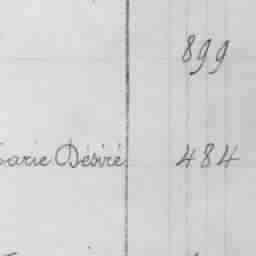 899
Marie Désiré 484